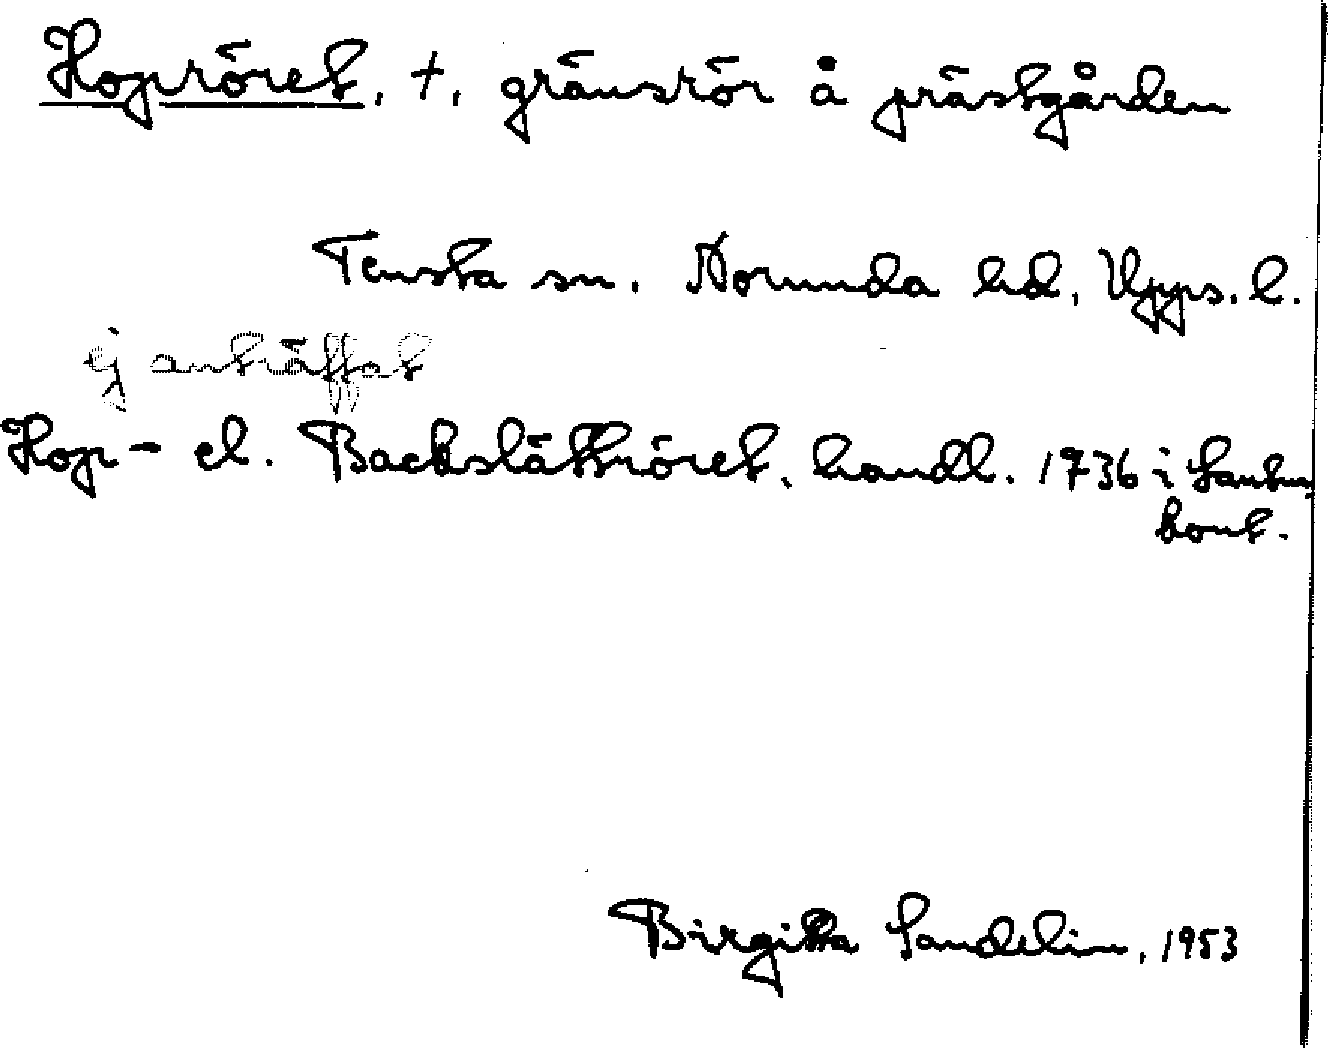 Hopröret, +, gränsrör å prästgården
Tensta sn. Norunda hd, Upps. l.
ej anträffat
Hop- el. Backslättröret, handl. 1736 i Lantm
kont.
Birgitta Sandelin, 1953